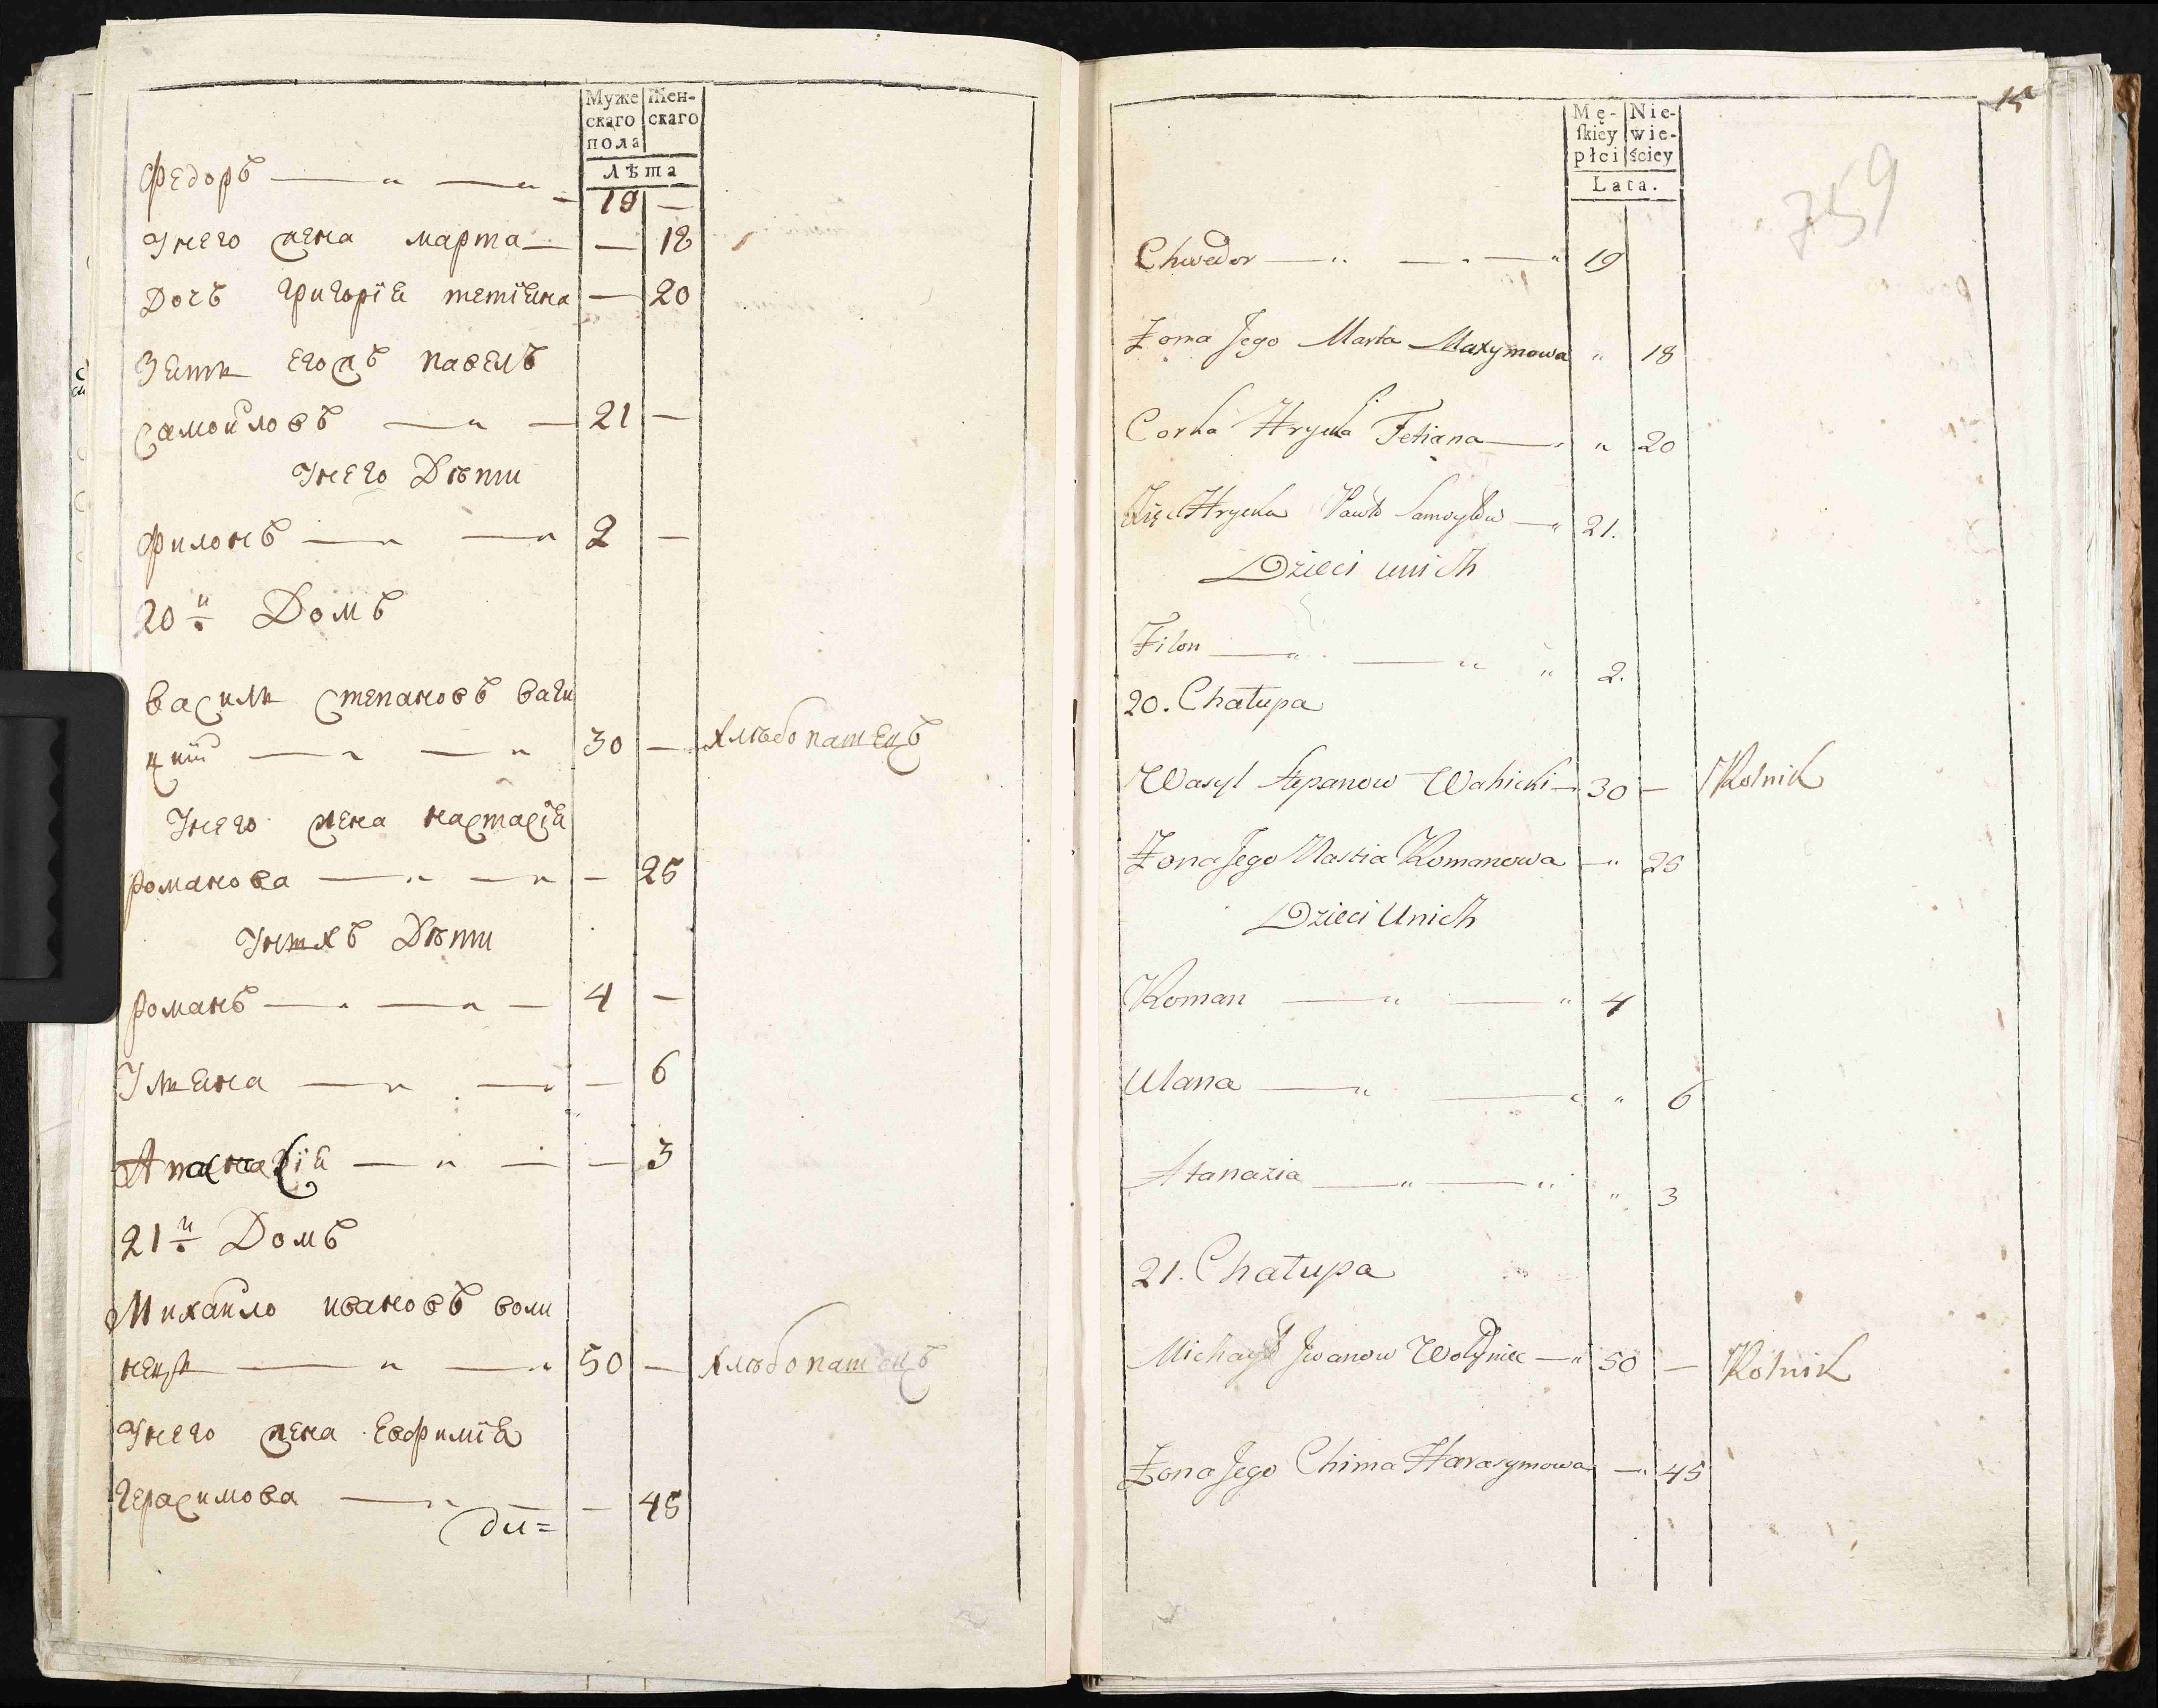 Муже Жен-
скаго скаго
пола
Лѣта
Федоръ — " — " — 19 —
Унего жена марта — — 18
Дочъ григорія тетіяна — 20
Зять егожъ павелъ
самойловъ — " — 21 —
Унего Дѣти
филонъ — " — " 2 —
20й Домъ
василь степановъ ваги
цкій — " — " 30 — хлѣбопашецъ
Унего жена настасія
романова — " — " — 25
Унихъ Дѣти
романъ — " — " — 4 —
Ульяна — " — " — 6
Атанасія — " — — 3
21й Домъ
Михайло ивановъ воли
нецъ — " — " 50 — хлѣбопашецъ
Унего жена Евфимія
герасимова — " — — 45
ди=
15
759
Mę- Nie-
ſkiey wie-
płci ściey
Lata.
Chwedor — " — " — " 19
Żona Jego Marta Maxymowa " 18
Corka Hryćka Tetiana — " " 20
Zięć Hryćka Pawło Samoyłow — " 21.
Dzieci unich
Filon — " — " " 2.
20. Chałupa
Wasyl Stepanow Wahicki — 30 — Rolnik
Żona Jego Nastia Romanowa — " 25
Dzieci Unich
Roman — " — " 4
Ulana — " — " " 6
Atanazia — " — " " 3
21. Chałupa
Michayło Jwanow Wołyniec — " 50 — Rolnik
Żona Jego Chima Harasymowa — " 45